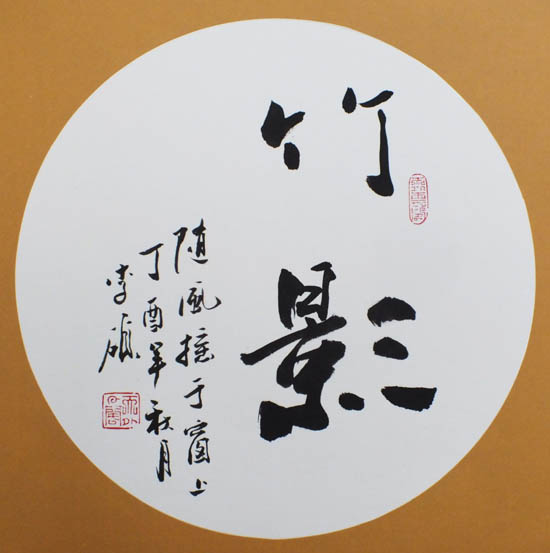 竹影
随风摇于窗上
丁酉年秋月
李